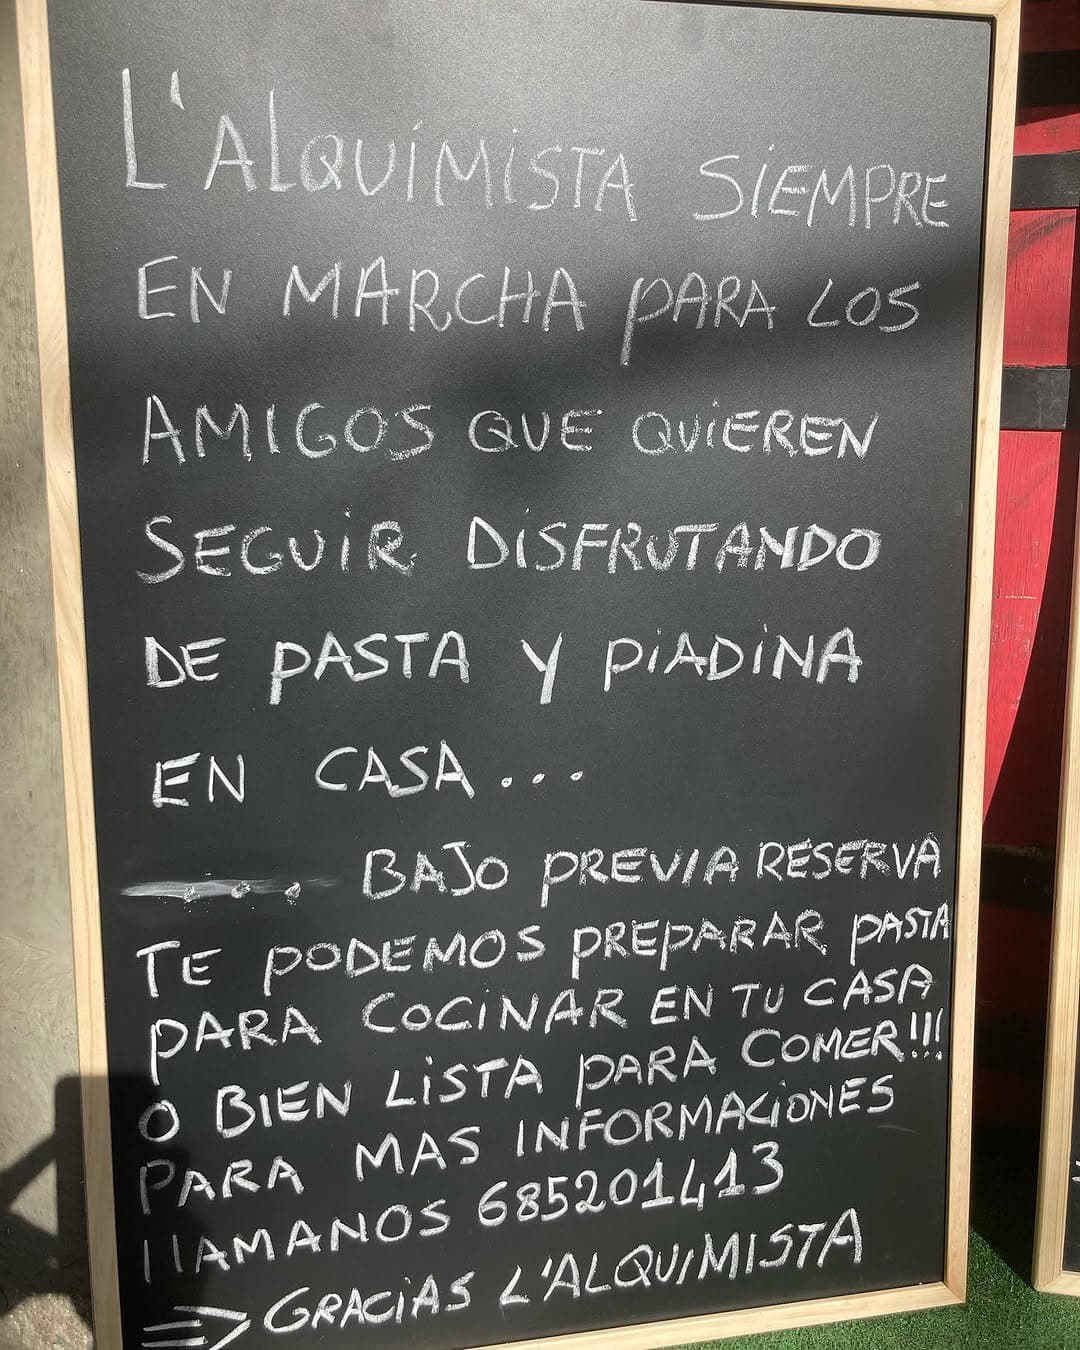 L'ALQUIMISTA SIEMPRE
EN MARCHA PARA LOS
AMIGOS QUE QUIEREN
SEGUIR DISFRUTANDO
DE PASTA Y PIADINA
EN CASA...
... BAJO PREVIA RESERVA
TE PODEMOS PREPARAR PASTA
PARA COCINAR EN TU CASA
O BIEN LISTA PARA COMER!!!
PARA MAS INFORMACIONES
llAMANOS 685201413
=> GRACIAS L'ALQUIMISTA